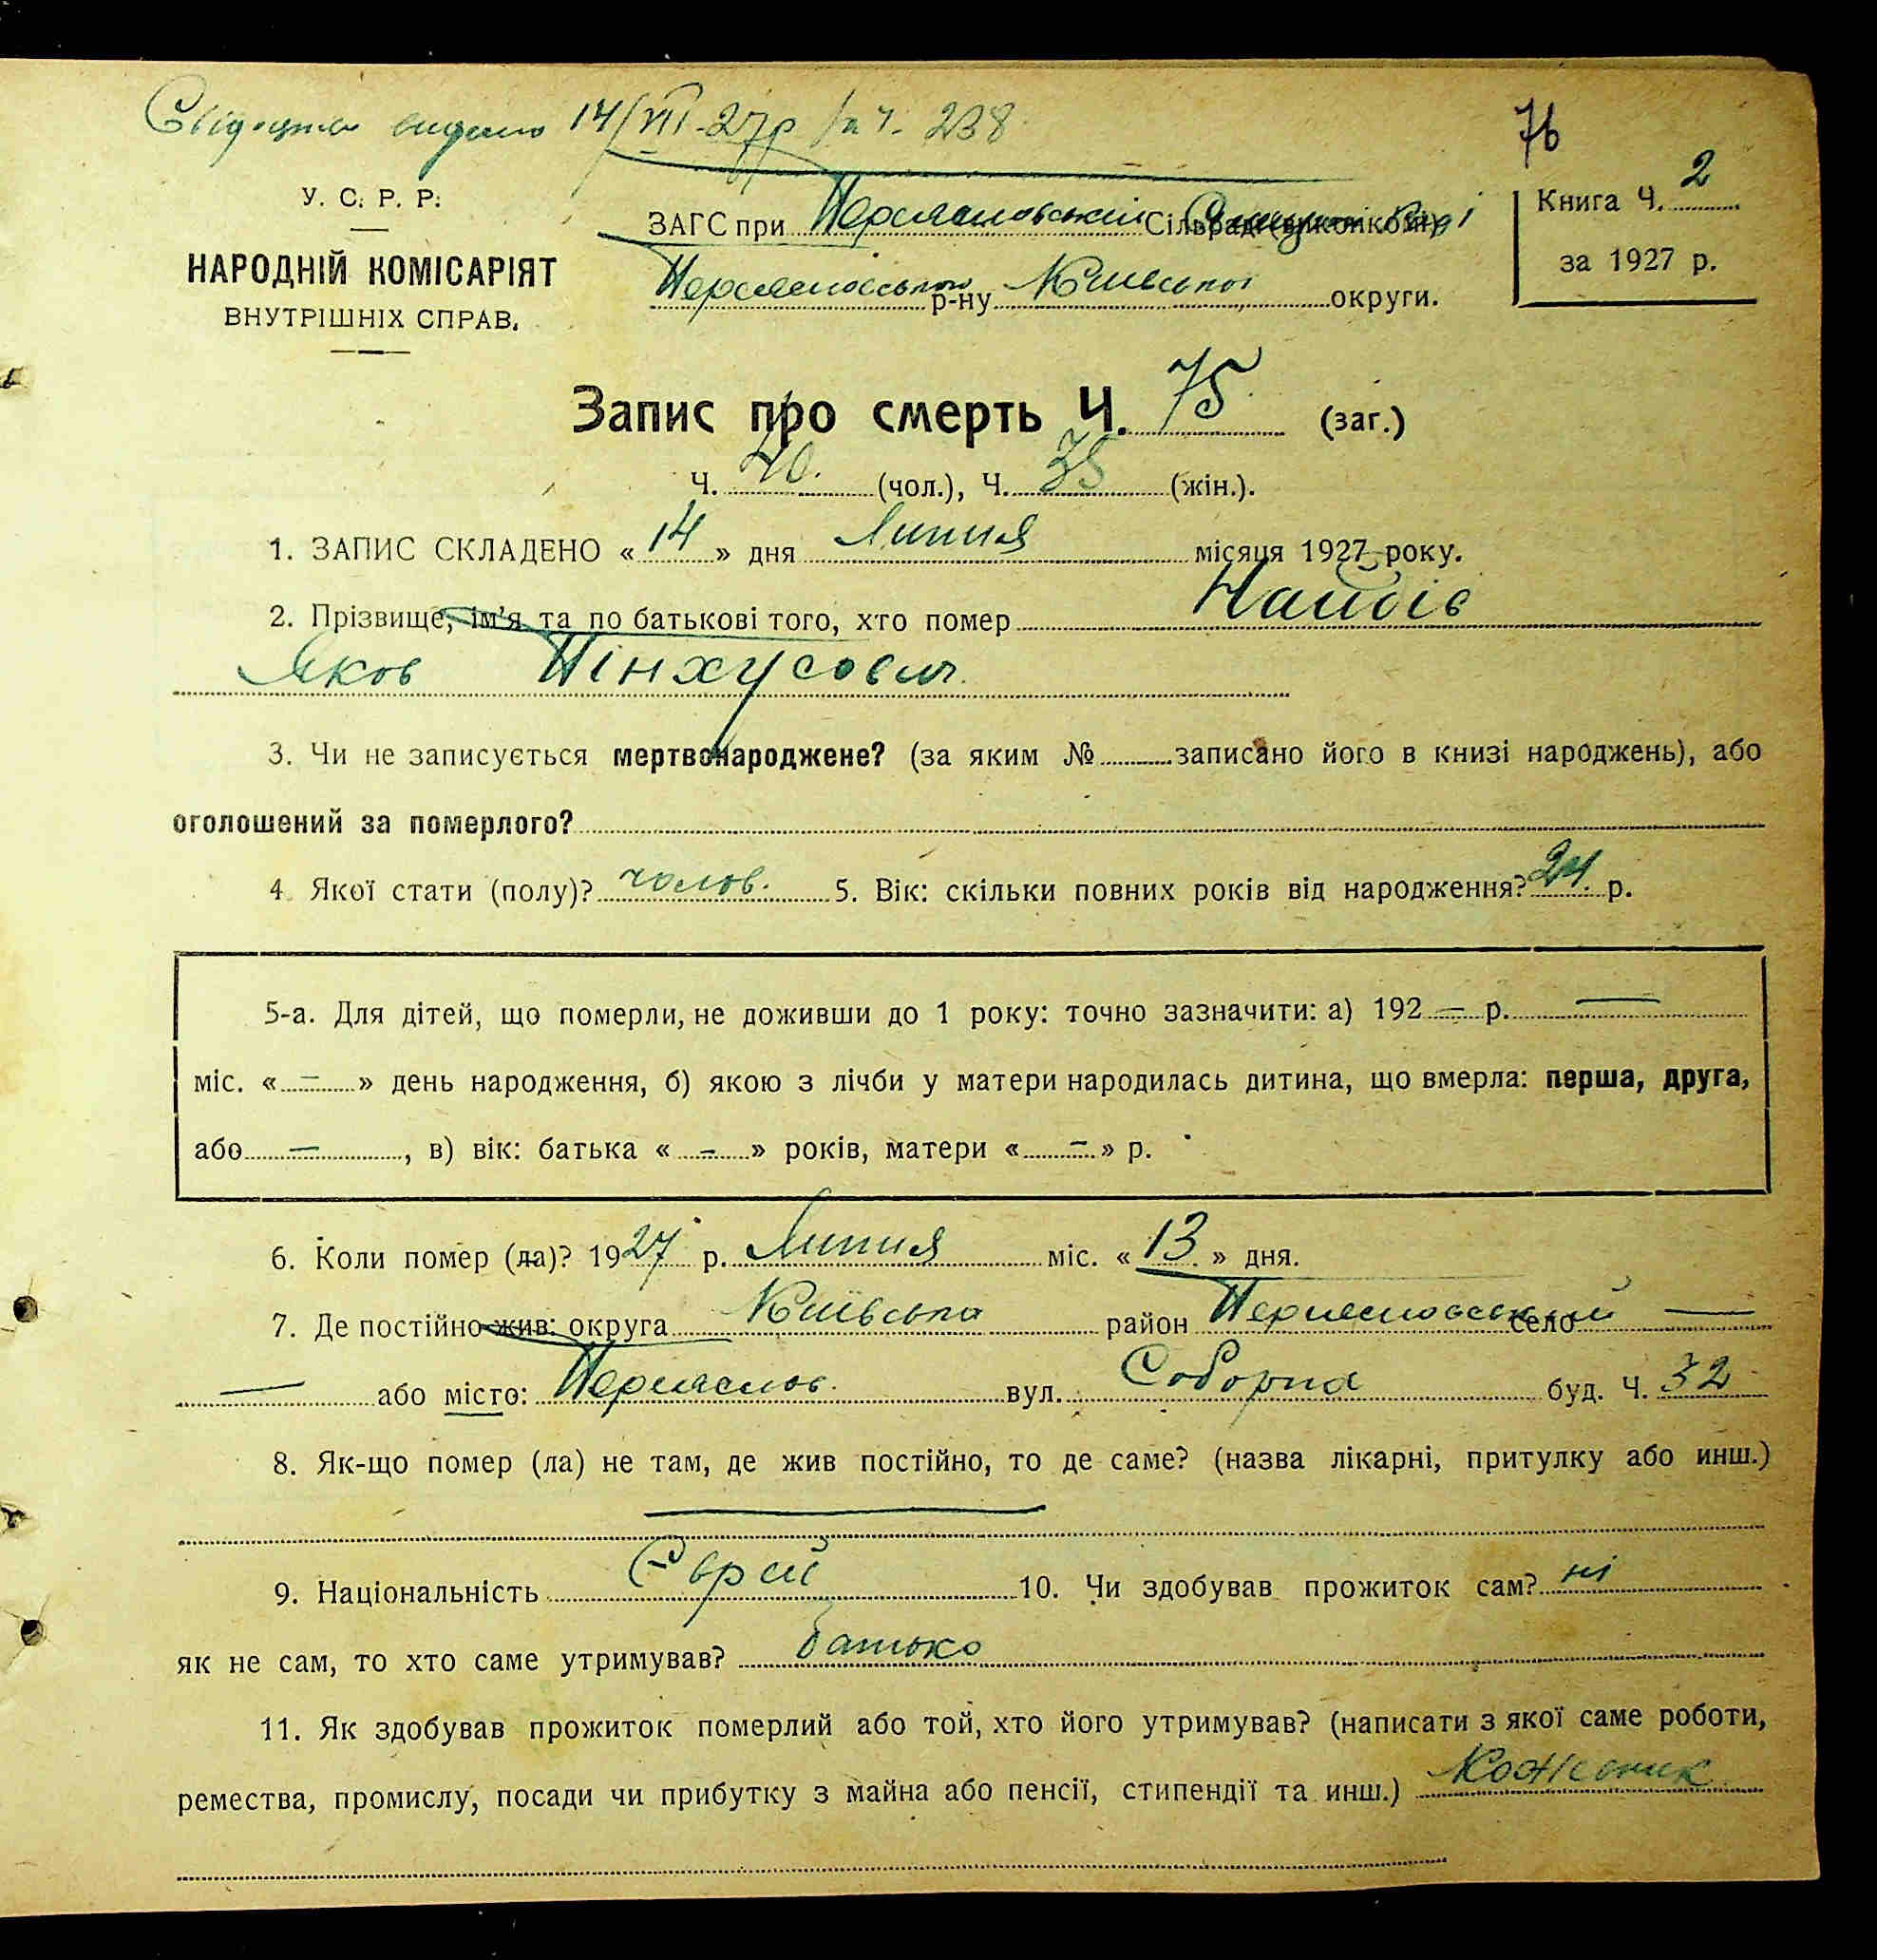 Свідоцтво видано 14/VII-27р за ч. 238
76
У. С. Р. Р.
НАРОДНІЙ КОМІСАРІЯТ
ВНУТРІШНІХ СПРАВ.
ЗАГС при Переяславській Сільраді (виконкомі)
Переяславського р-ну Київської округи.
Книга Ч. 2
за 1927 р.
Запис про смерть Ч. 75 (заг.)
Ч. 40 (чол.), Ч. 35 (жін.).
1. ЗАПИС СКЛАДЕНО « 14 » дня Липня місяця 1927 року.
2. Прізвище, ім'я та по батькові того, хто помер
Яков Пінхусович
3. Чи не записується мертвонароджене? (за яким № записано його в книзі народжень), або
оголошений за померлого?
4. Якої стати (полу)? чолов. 5. Вік: скільки повних років від народження? 24. р.
5-а. Для дітей, що померли, не доживши до 1 року: точно зазначити: а) 192 — р. —
міс. « — » день народження, б) якою з лічби у матери народилась дитина, що вмерла: перша, друга,
або — , в) вік: батька « — » років, матери « — » р.
6. Коли помер (ла)? 1927 р. Липня міс. « 13 » дня.
7. Де постійно жив: округа Київська район Переяславський село —
— або місто: Переяслав. вул. Соборна буд. Ч. 32
8. Як-що помер (ла) не там, де жив постійно, то де саме? (назва лікарні, притулку або инш.)
—
9. Національність Єврей 10. Чи здобував прожиток сам? ні
як не сам, то хто саме утримував? батько
11. Як здобував прожиток померлий або той, хто його утримував? (написати з якої саме роботи,
ремества, промислу, посади чи прибутку з майна або пенсії, стипендії та инш.) Кожевник